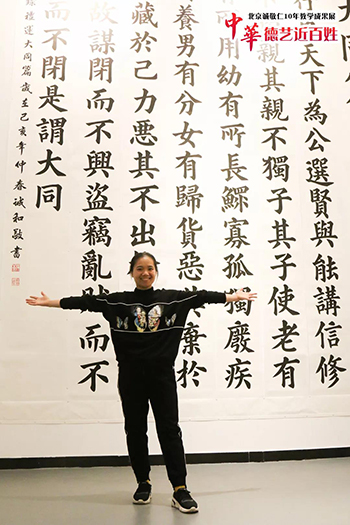 北京诚敬仁10年教学成果展
中華德艺近百姓
天下為公選賢與能講信修
其親不獨子其子使老有
用幼有所長鰥寡孤獨廢疾
養男有分女有歸貨惡其棄於
藏於己力惡其不出
故謀閉而不興盜竊亂賊而不
而不閉是謂大同
禮運大同篇歲在己亥年仲春誠和敬書